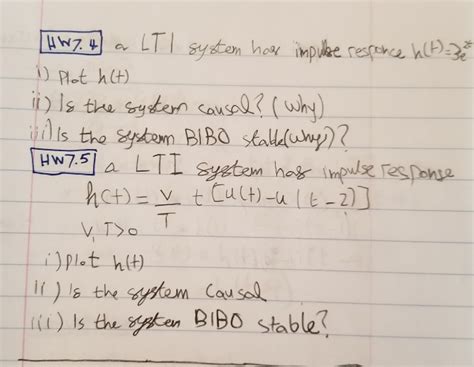 HW7.4 a LTI system has impulse response h(t)=
i) Plot h(t)
ii) Is the system causal? (why)
iii) Is the system BIBO stable(why)?
HW7.5 a LTI system has impulse response
h(t) = V/T t [u(t)-u(t-2)]
V,T>0
i) Plot h(t)
ii) Is the system causal
iii) Is the system BIBO stable?